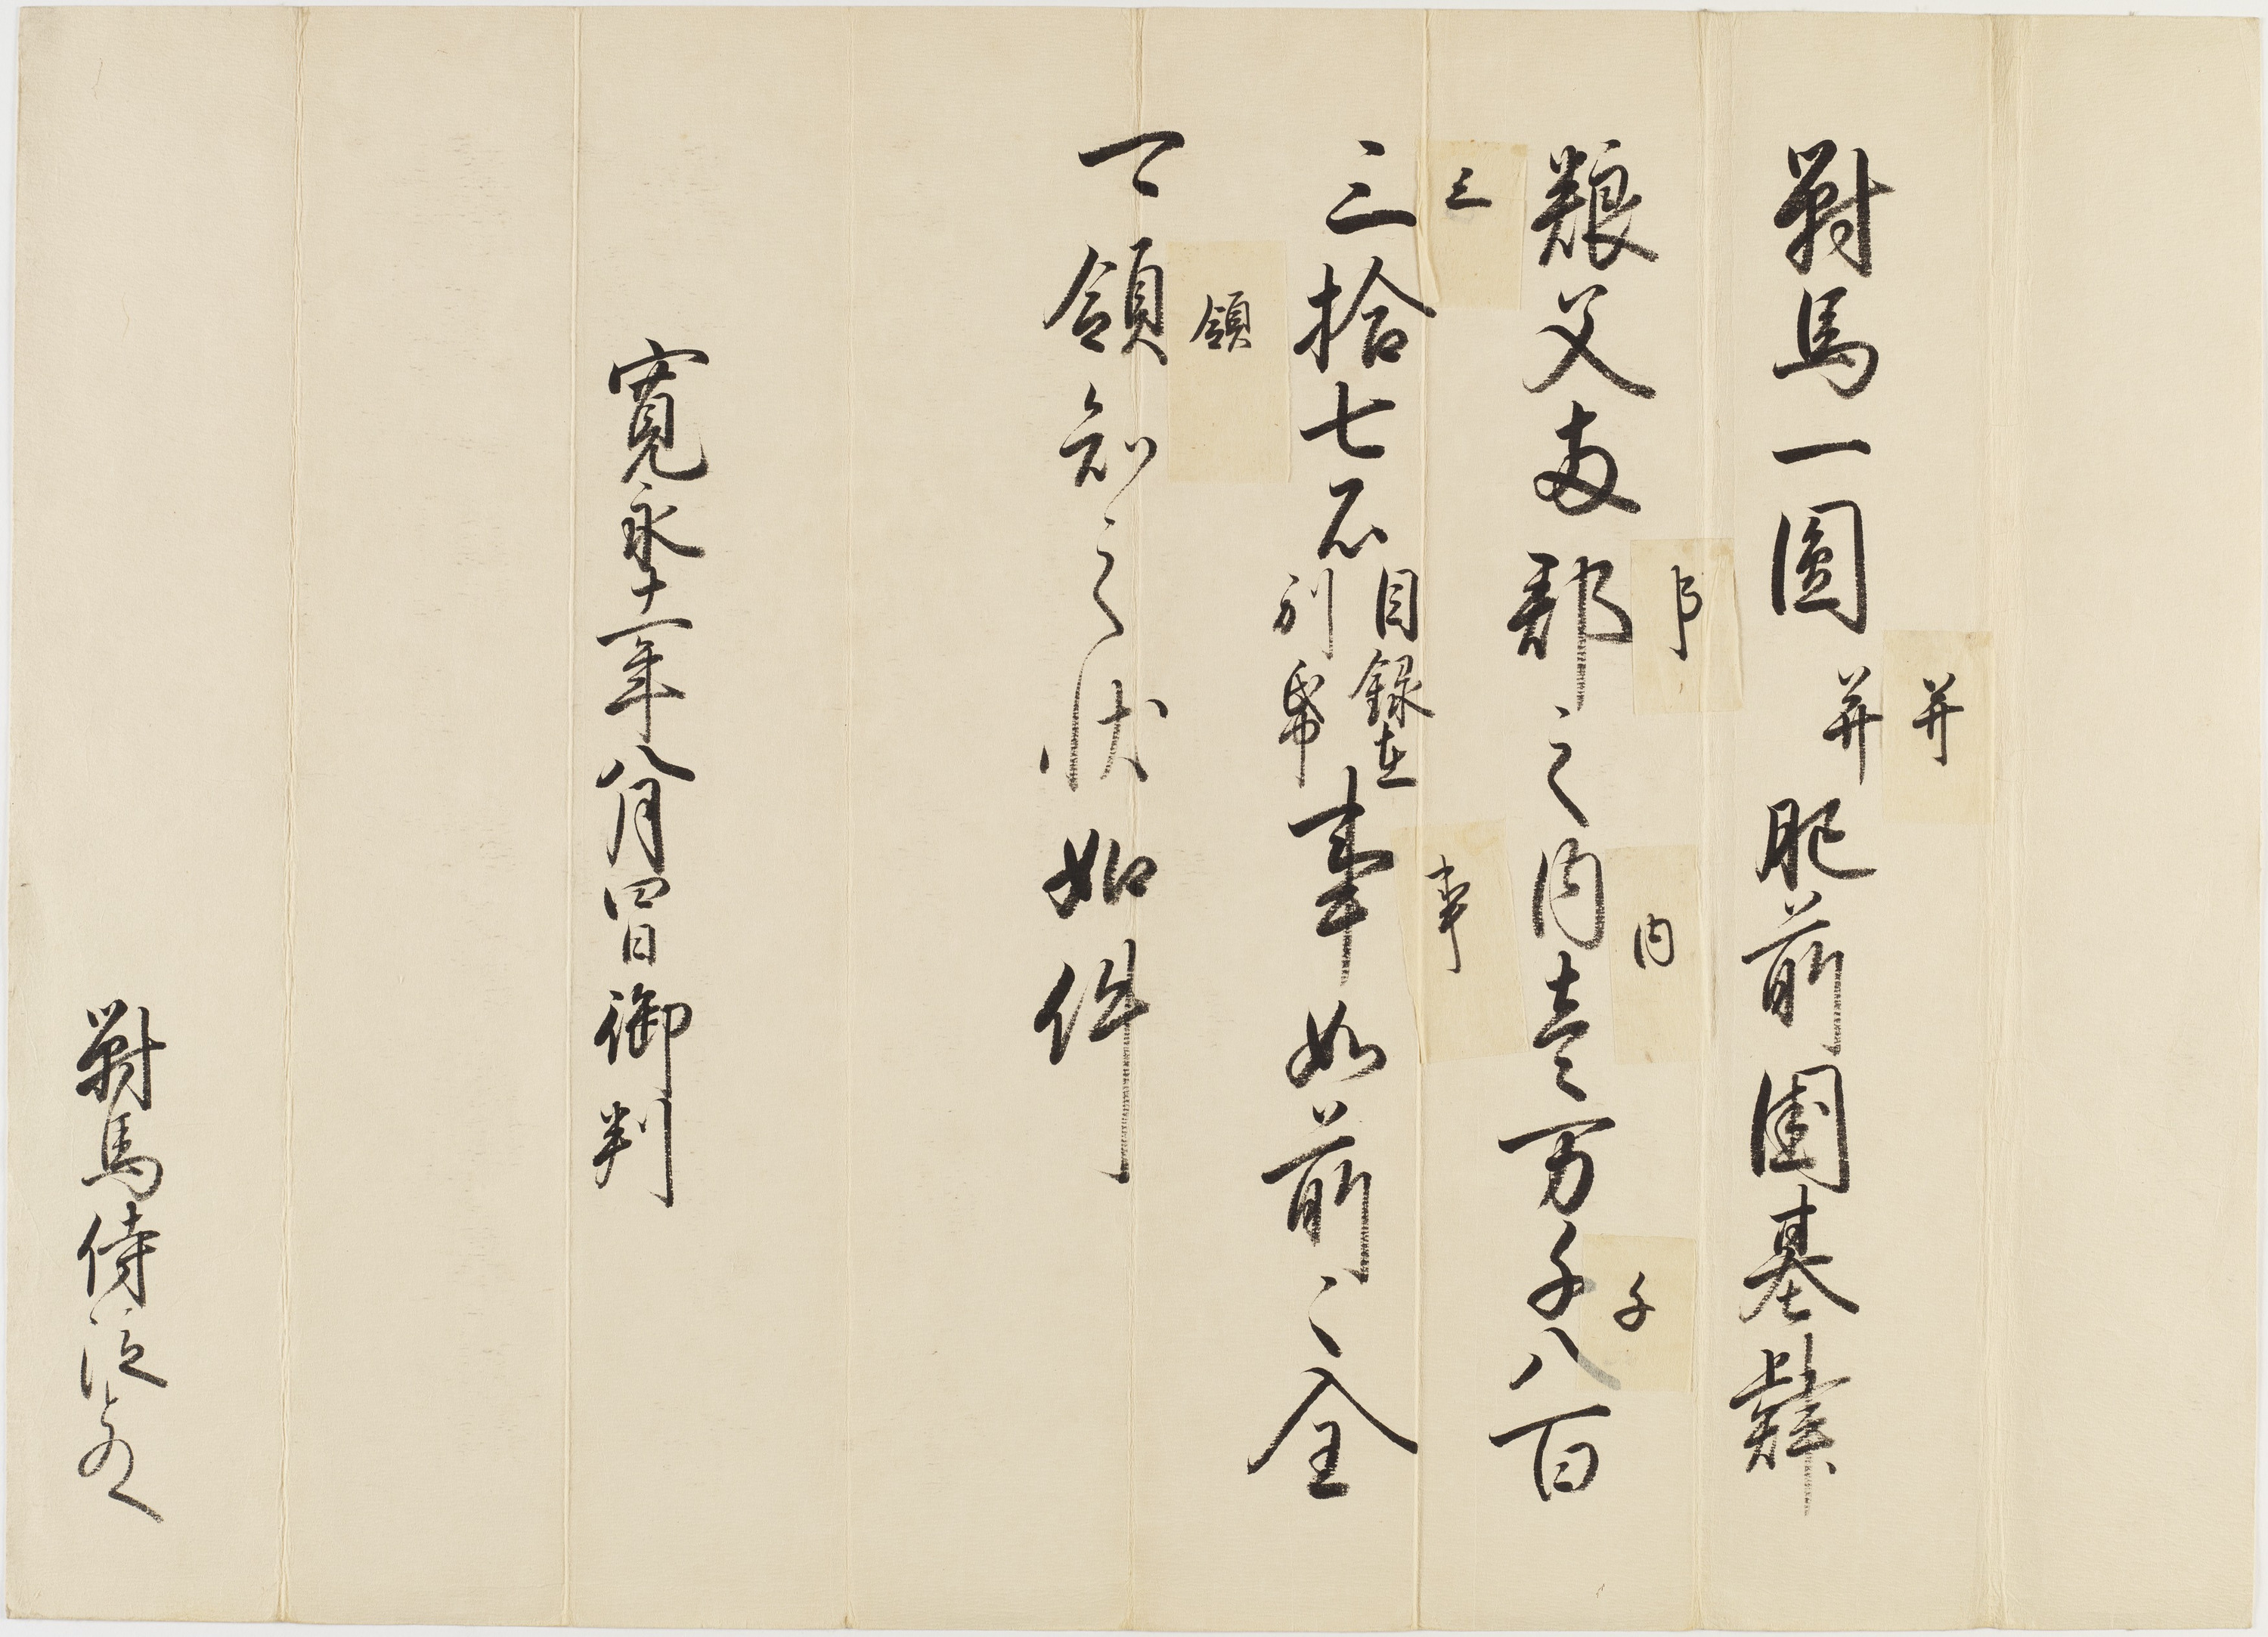 并
對馬一圓并肥前國基肄
阝
内
千
粮父両郡之内壹万千八百
三
事
三拾七石目録在別帋事如前々全
領
可領知之状如件
寛永十一年八月四日御判
對馬侍従とのへ